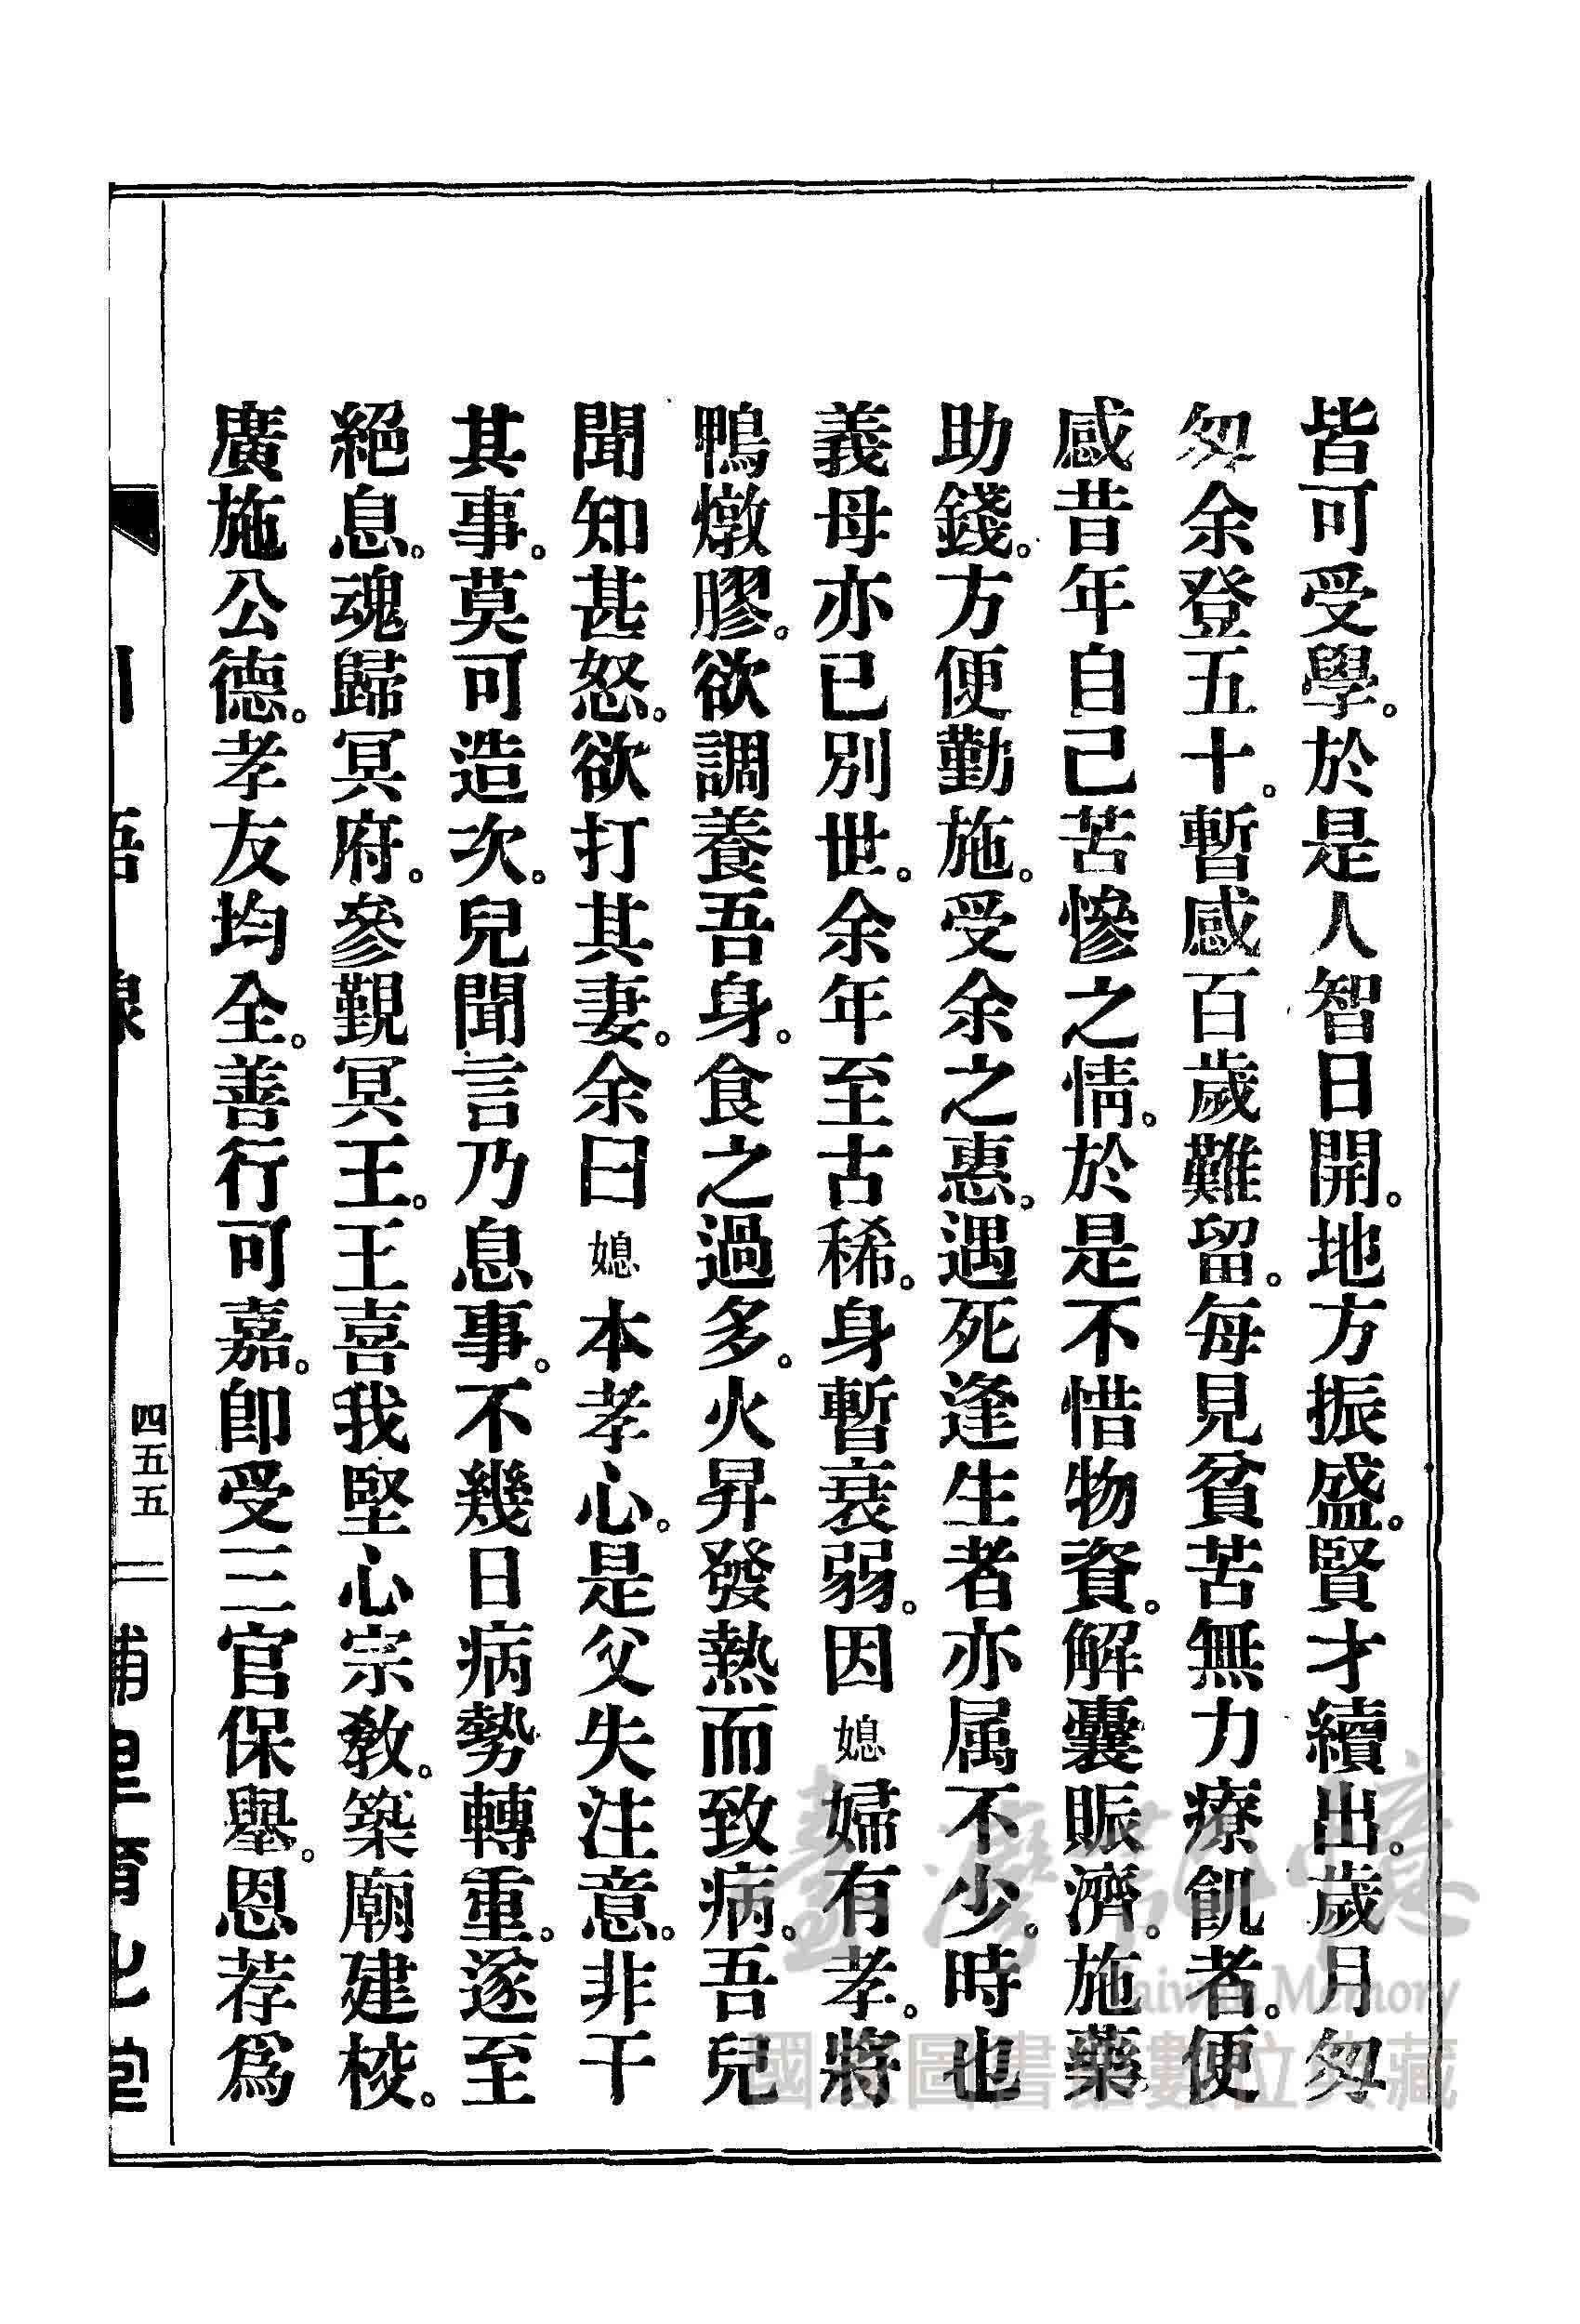 皆可受學。於是人智日開。地方振盛。賢才續出。歲月匆
匆余登五十。暫感百歲難留。每見貧苦無力療飢者。便
感昔年自己苦慘之情。於是不惜物資。解囊賑濟。施藥
助錢。方便勤施。受余之惠。遇死逢生者亦属不少。時也
義母亦已別世。余年至古稀。身暫衰弱。因媳婦有孝。將
鴨燉膠。欲調養吾身。食之過多。火昇發熱而致病。吾兒
聞知甚怒。欲打其妻。余曰媳本孝心。是父失注意。非干
其事。莫可造次。兒聞言乃息事。不幾日病勢轉重。遂至
絕息。魂歸冥府。參覲冥王。王喜我堅心宗教。築廟建校。
廣施公德。孝友均全。善行可嘉。卽受三官保舉。恩荐爲
四五五
埔里育化堂
臺灣記憶
Taiwan Memory
國家圖書館數位典藏